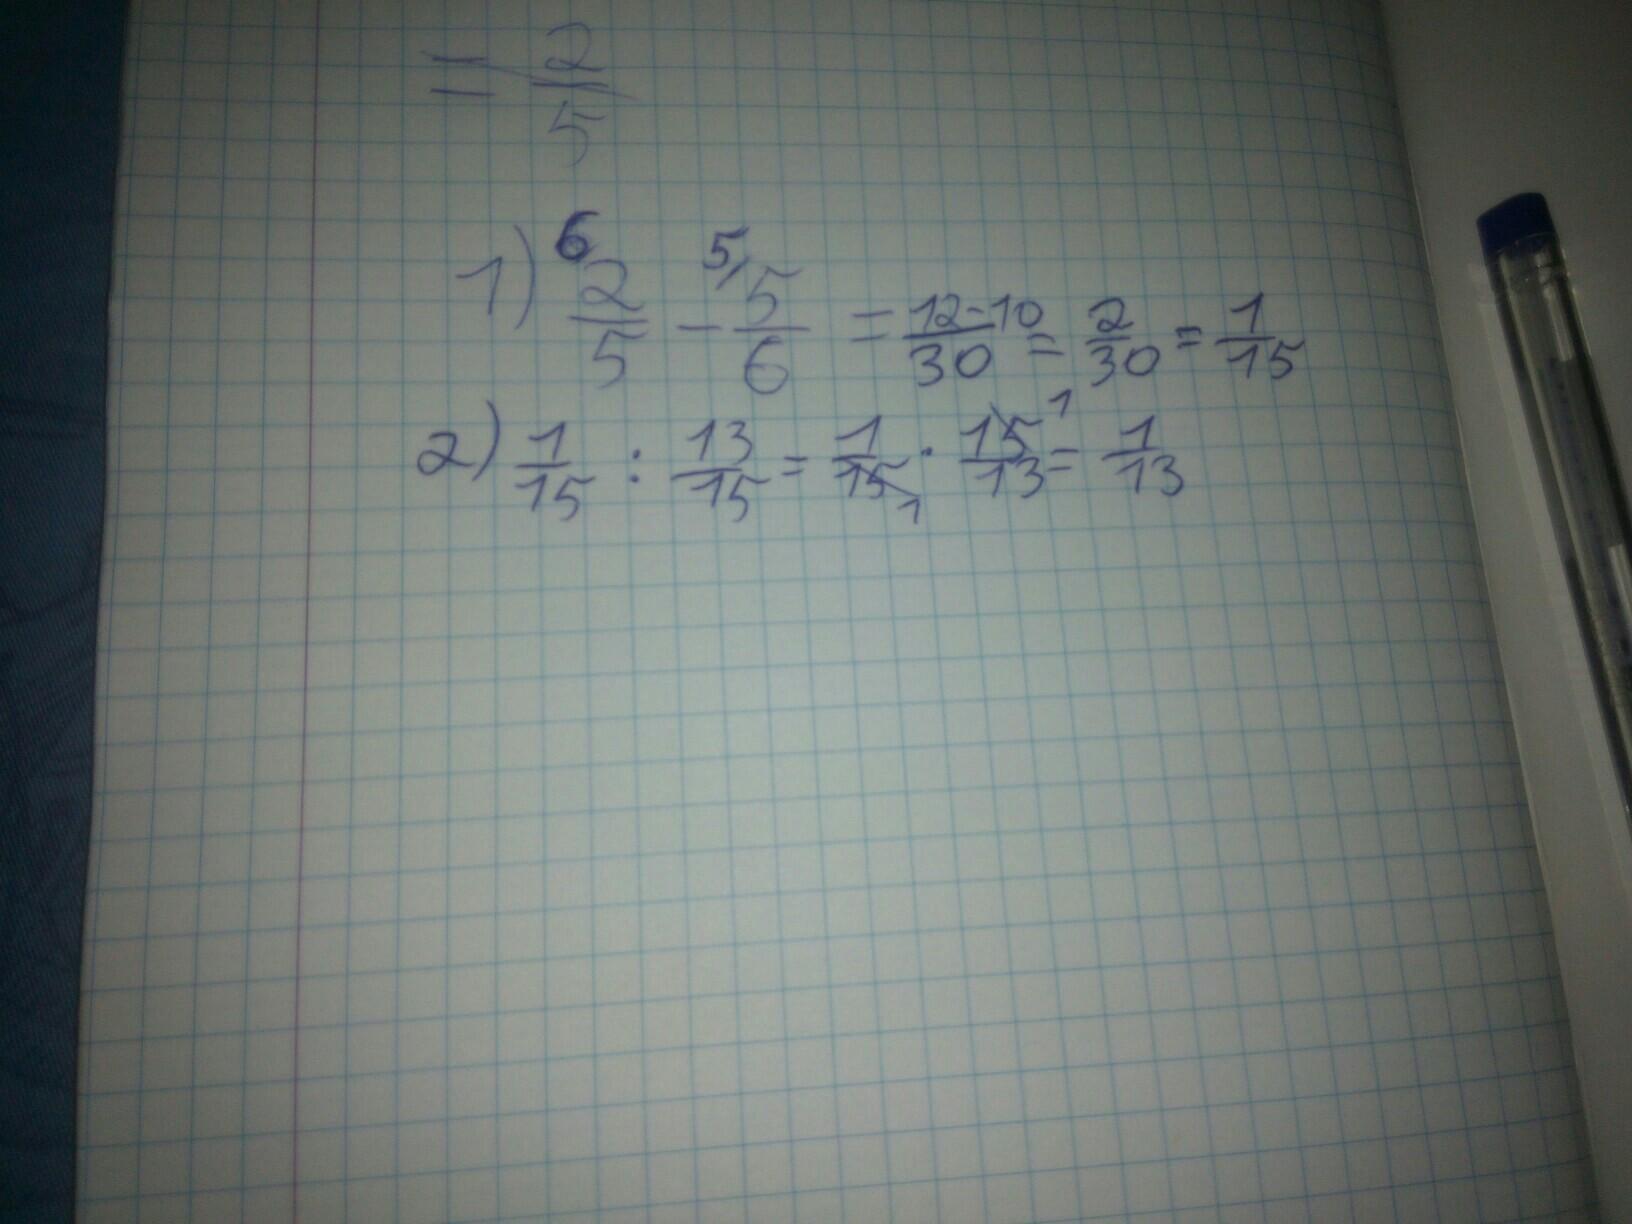 = 2/5
1) ⁶2/5 - ⁵⸍5/6 = 12-10/30 = 2/30 = 1/15
2) 1/15 : 13/15 = 1/15₁ · 15¹/13 = 1/13